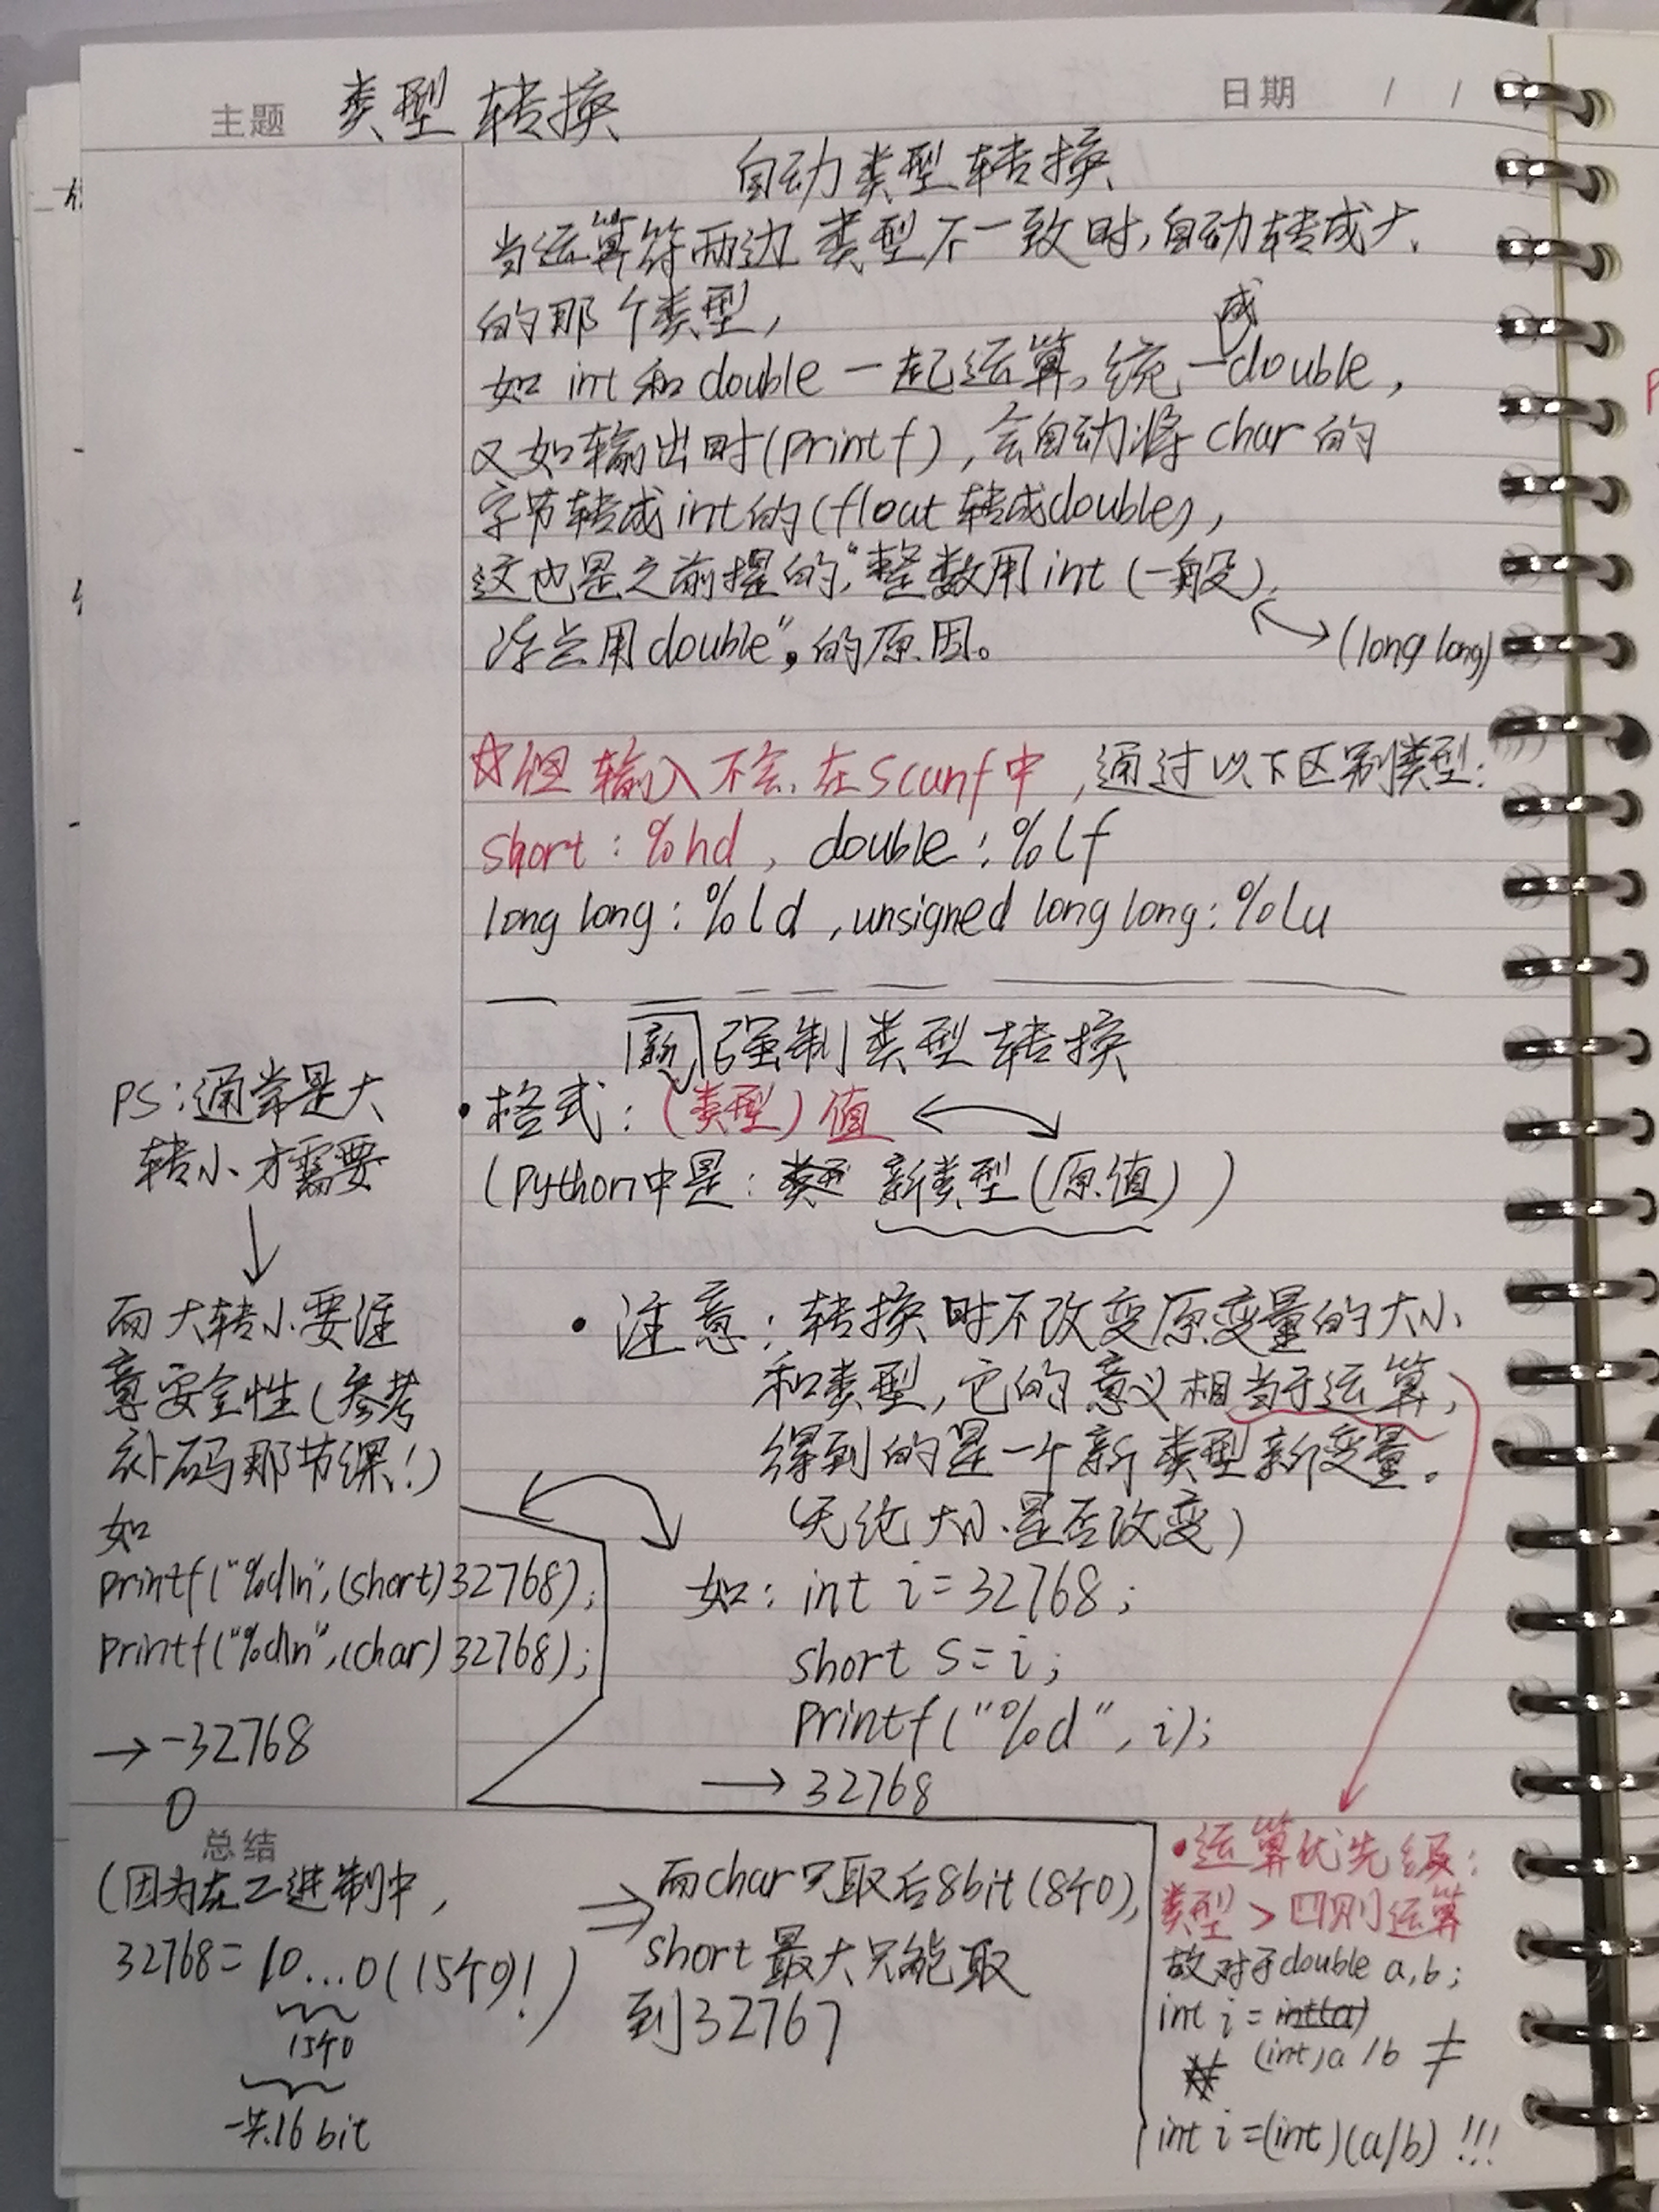 主题 类型转换
日期 / /
自动类型转换
当运算符两边类型不一致时,自动转成大
的那个类型,
成
如 int 和 double 一起运算,统一double,
又如输出时(printf),会自动将 char 的
字节转成 int 的(float 转成double),
这也是之前提的,"整数用 int (一般),
浮点用 double",的原因。
(long long)
☆但输入不会,在scanf中,通过以下区别类型:
short : %hd , double : %lf
long long : %ld , unsigned long long : %lu
新 强制类型转换
• 格式 : (类型) 值
(python中是: 新类型(原值))
• 注意: 转换时不改变原变量的大小
和类型,它的意义相当于运算,
得到的是一个新类型新变量。
(无论大小是否改变)
如: int i = 32768 ;
short s = i ;
printf("%d", i);
→ 32768
PS:通常是大
转小才需要
↓
而大转小要注
意安全性(参考
补码那节课!)
如
printf("%d\n",(short)32768);
printf("%d\n",(char)32768);
→ -32768
0
总结
(因为在二进制中,
32768 = 10...0(15个0)!)
15个0
一共16 bit
⇒ 而char只取后8bit(8个0),
short 最大只能取
到32767
• 运算优先级:
类型 > 四则运算
故对于double a,b;
int i = int(a)
(int)a / b ≠
int i =(int)(a/b) !!!